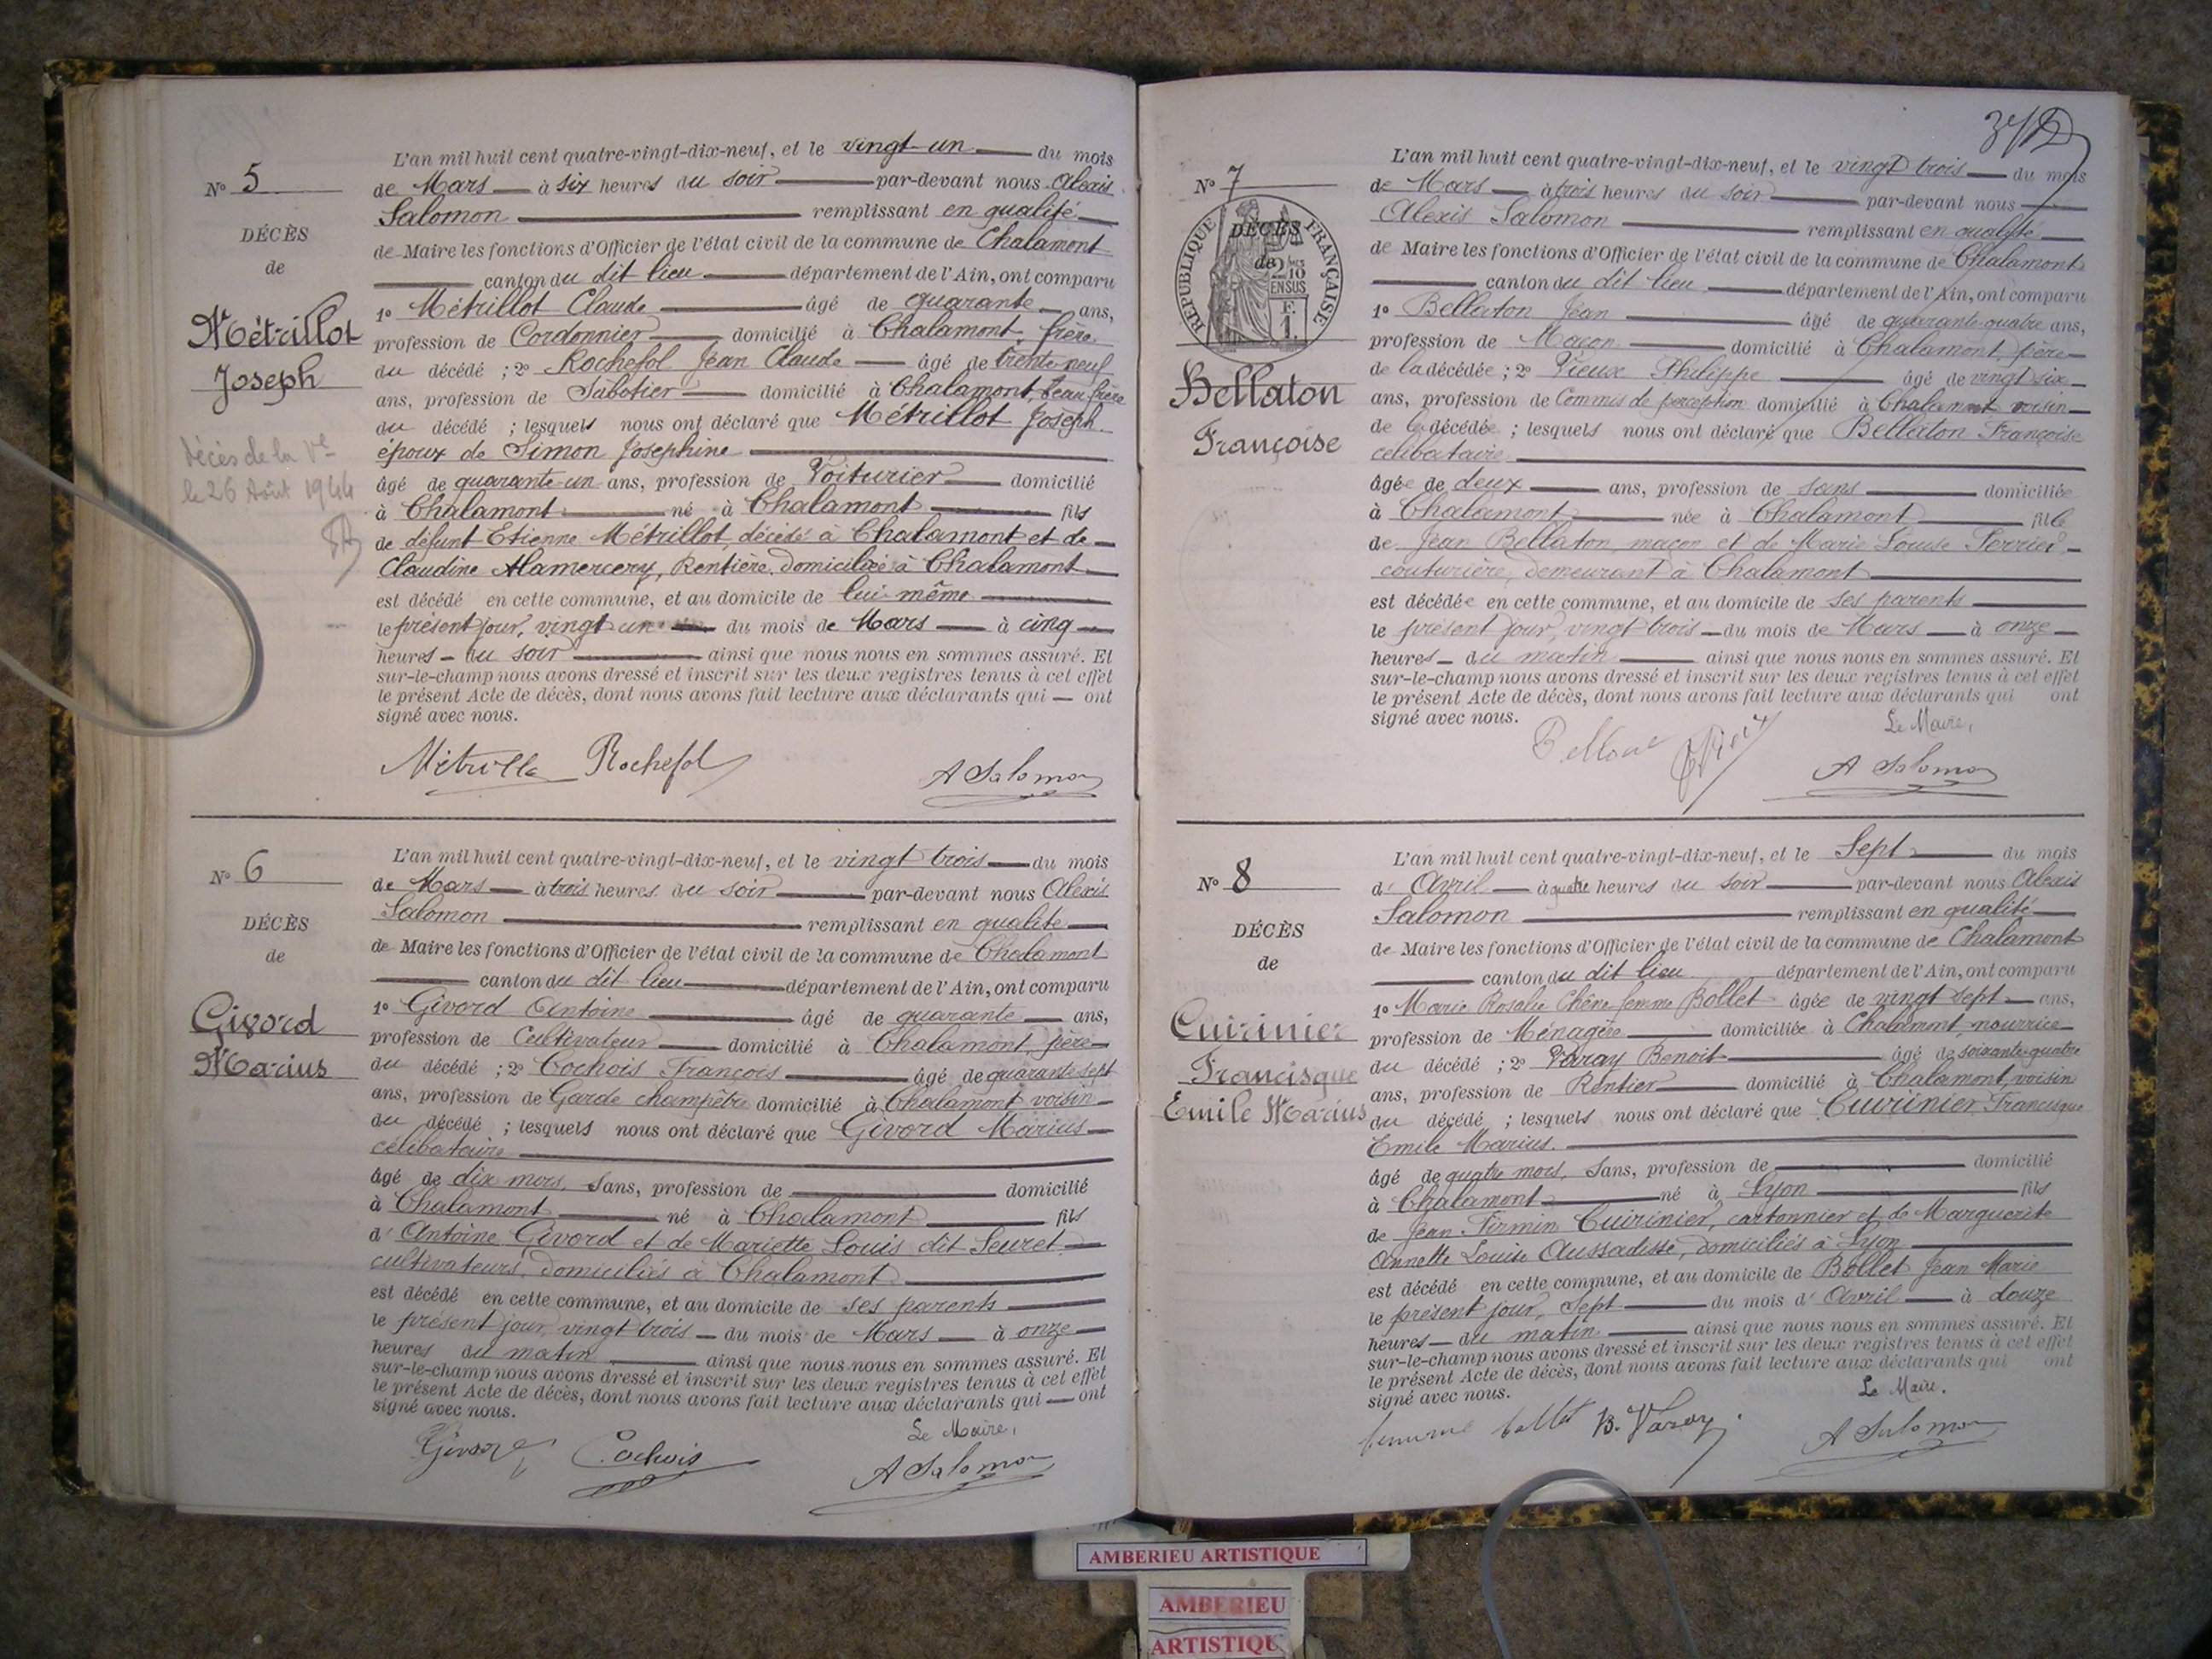 L'an mil huit cent quatre-vingt-dix-neuf, et le vingt-un du mois
Nº 5
de Mars à six heures du soir par-devant nous Alexis
Salomon remplissant en qualité
DÉCÈS
de
de Maire les fonctions d'Officier de l'état civil de la commune de Chalamont
canton du dit lieu département de l'Ain, ont comparu
1º Métrillot Claude âgé de quarante ans,
Métrillot
Joseph
profession de Cordonnier domicilié à Chalamont, frère
du décédé ; 2º Rochefol Jean Claude âgé de trente-neuf
ans, profession de Sabotier domicilié à Chalamont, beau frère
du décédé ; lesquels nous ont déclaré que Métrillot Joseph
époux de Simon Joséphine
Décès de la Vve
le 26 Août 1944
âgé de quarante-un ans, profession de Voiturier domicilié
à Chalamont né à Chalamont fils
de défunt Etienne Métrillot, décédé à Chalamont et de
Claudine Alamercery, Rentière, domiciliée à Chalamont
est décédé en cette commune, et au domicile de lui-même
le présent jour, vingt un du mois de Mars à cinq
heures du soir ainsi que nous nous en sommes assuré. Et
sur-le-champ nous avons dressé et inscrit sur les deux registres tenus à cet effet
le présent Acte de décès, dont nous avons fait lecture aux déclarants qui ont
signé avec nous.
Rochefol A Salomon
L'an mil huit cent quatre-vingt-dix-neuf, et le vingt trois du mois
Nº 6
de Mars à trois heures du soir par-devant nous Alexis
Salomon remplissant en qualité
DÉCÈS
de
de Maire les fonctions d'Officier de l'état civil de la commune de Chalamont
canton du dit lieu département de l'Ain, ont comparu
1º Givord Antoine âgé de quarante ans,
Givord
Marius
profession de Cultivateur domicilié à Chalamont, père
du décédé ; 2º Cochois François âgé de quarante sept
ans, profession de Garde champêtre domicilié à Chalamont voisin
du décédé ; lesquels nous ont déclaré que Givord Marius
célibataire
âgé de dix mois, sans, profession de domicilié
à Chalamont né à Chalamont fils
d' Antoine Givord et de Mariette Louis dit Seuret
cultivateurs, domiciliés à Chalamont
est décédé en cette commune, et au domicile de ses parents
le présent jour, vingt trois du mois de Mars à onze
heures du matin ainsi que nous nous en sommes assuré. Et
sur-le-champ nous avons dressé et inscrit sur les deux registres tenus à cet effet
le présent Acte de décès, dont nous avons fait lecture aux déclarants qui ont
signé avec nous.
Le Maire,
Givord Cochois A Salomon
L'an mil huit cent quatre-vingt-dix-neuf, et le vingt trois du mois
Nº 7
de Mars à trois heures du soir par-devant nous
Alexis Salomon remplissant en qualité
RÉPUBLIQUE FRANÇAISE
DÉCÈS
de
2/10
EN SUS
F.
1.
de Maire les fonctions d'Officier de l'état civil de la commune de Chalamont
canton du dit lieu département de l'Ain, ont comparu
1º Bellaton Jean âgé de quarante-quatre ans,
profession de Maçon domicilié à Chalamont, père
Bellaton
Françoise
de la décédée ; 2º Vieux Philippe âgé de vingt six
ans, profession de Commis de perception domicilié à Chalamont voisin
de la décédée ; lesquels nous ont déclaré que Bellaton Françoise
célibataire
âgée de deux ans, profession de sans domiciliée
à Chalamont née à Chalamont fille
de Jean Bellaton, maçon et de Marie Louise Perrier
couturière, demeurant à Chalamont
est décédée en cette commune, et au domicile de ses parents
le présent jour, vingt trois du mois de Mars à onze
heures du matin ainsi que nous nous en sommes assuré. Et
sur-le-champ nous avons dressé et inscrit sur les deux registres tenus à cet effet
le présent Acte de décès, dont nous avons fait lecture aux déclarants qui ont
signé avec nous.
Le Maire,
A Salomon
L'an mil huit cent quatre-vingt-dix-neuf, et le Sept du mois
Nº 8
d' Avril à quatre heures du soir par-devant nous Alexis
Salomon remplissant en qualité
DÉCÈS
de
de Maire les fonctions d'Officier de l'état civil de la commune de Chalamont
canton du dit lieu département de l'Ain, ont comparu
1º Marie Rosalie Chêne femme Bollet âgée de vingt sept ans,
Cuirinier
Francisque
Emile Marius
profession de Ménagère domiciliée à Chalamont, nourrice
du décédé ; 2º Varay Benoit âgé de soixante-quatre
ans, profession de Rentier domicilié à Chalamont, voisin
du décédé ; lesquels nous ont déclaré que Cuirinier Francisque
Emile Marius.
âgé de quatre mois, Sans, profession de domicilié
à Chalamont né à Lyon fils
de Jean Firmin Cuirinier, cartonnier et de Marguerite
Annette Louise Aussadisse, domiciliés à Lyon
est décédé en cette commune, et au domicile de Bollet Jean Marie
le présent jour, Sept du mois d' Avril à douze
heures du matin ainsi que nous nous en sommes assuré. Et
sur-le-champ nous avons dressé et inscrit sur les deux registres tenus à cet effet
le présent Acte de décès, dont nous avons fait lecture aux déclarants qui ont
signé avec nous.
Le Maire.
femme bollet B. Varay A Salomon
AMBERIEU ARTISTIQUE
AMBERIEU
ARTISTIQU